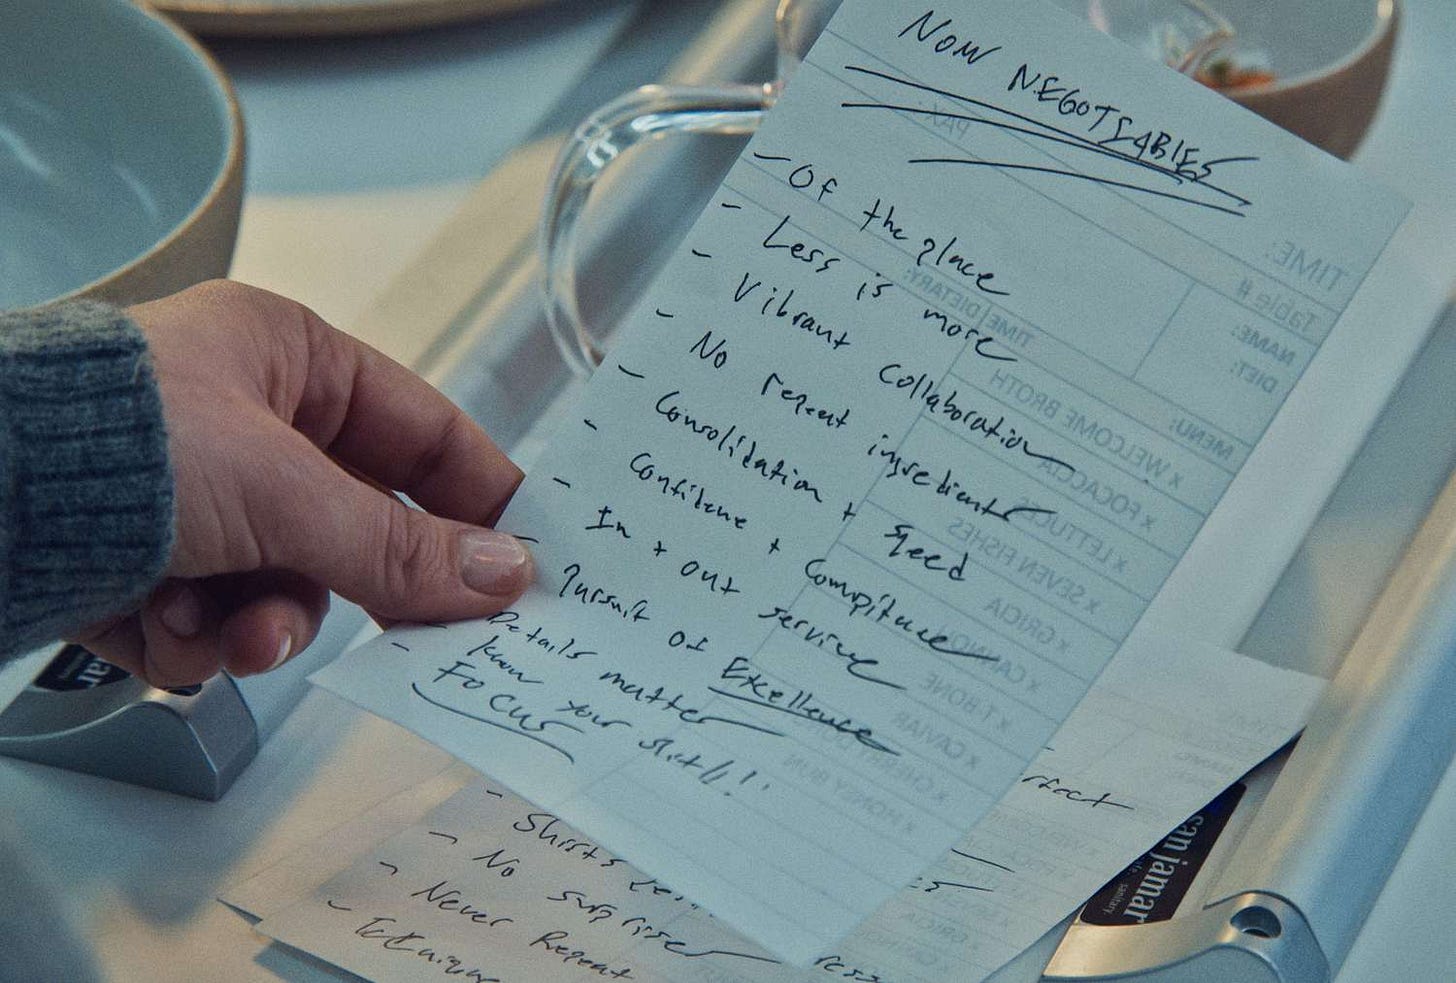 NON NEGOTIABLES
- Of the place
- Less is more
- Vibrant Collaboration
- No repeat ingredients
- Consolidation + speed
- Confidence + Competence
- In + out service
- Pursuit of Excellence
- Details matter
- Know your shit!!!
FOCUS
PAX:
TIME:
Table #
NAME:
DIET:
TIME DIETARY:
MENU:
x WELCOME BROTH
x FOCACCIA
x LETTUCE
x SEVEN FISHES
x GRICIA
x T.BONE
x CAVIAR
x HONEY BUN
- Shirts
- No surprises
- Never Repeat
- Technique
san jamar